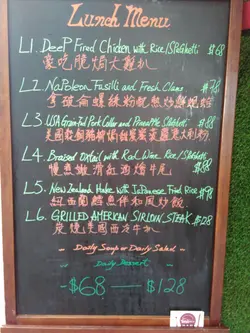 Lunch Menu
L1. Deep Fired Chicken with Rice/Spaghetti $68
L2. Napoleon Fusilli and Fresh Clams $78
L3. USA Grain-Fed Pork Collar and Pineapple Spaghetti $88
L4. Braised Oxtail with Red Wine Rice/Spaghetti $88
慢煮嫩滑紅酒燴牛尾
L5. New Zealand Hake with Japanese Fried Rice $98
紐西蘭鱈魚伴和風炒飯
L6. GRILLED AMERICAN SIRLOIN STEAK $128
炭燒美國西冷牛扒
- Daily Soup or Daily Salad -
- Daily Dessert -
-$68 — $128